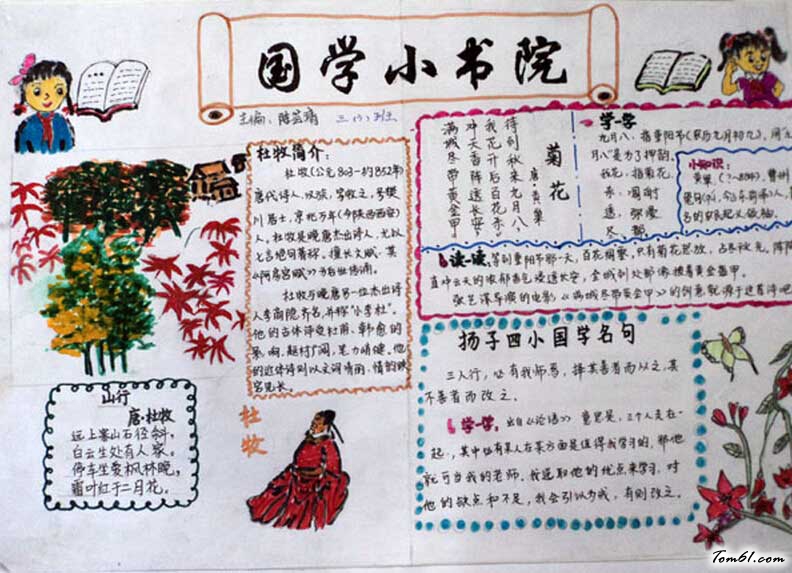 国学小书院
主编：陈芸清 三(八)班
杜牧简介：
杜牧(公元803—约852年)
唐代诗人，汉族，字牧之，号樊
川居士，京兆万年(今陕西西安)
人，杜牧是晚唐杰出诗人，尤以
七言绝句著称，擅长文赋，其
《阿房宫赋》为后世传诵。
杜牧与晚唐另一位杰出诗
人李商隐齐名，并称"小李杜"。
他的古体诗受杜甫、韩愈的
影响，题材广阔，笔力峭健。他
的近体诗则以文词清丽、情韵跌
宕见长。
山行
唐·杜牧
远上寒山石径斜，
白云生处有人家。
停车坐爱枫林晚，
霜叶红于二月花。
杜牧
菊花
唐·黄巢
待到秋来九月八
我花开后百花杀
冲天香阵透长安
满城尽带黄金甲
学一学
九月八：指重阳节(农历九月初九)，
月八"是为了押韵。
我花：指菊花。
杀：凋谢
透：弥漫
尽：都
小知识：
黄巢(？—884)，曹州
读一读：等到重阳节那一天，百花凋零，只有菊花怒放，占尽秋光。阵阵
直冲云天的浓郁香气浸透长安，全城到处都像披着黄金盔甲。
张艺谋导演的电影《满城尽带黄金甲》的创意就源于这首诗吧
扬子四小国学名句
三人行，必有我师焉，择其善者而从之，其
不善者而改之。
学一学：出自《论语》意思是：三个人走在一
起，其中必有某人在某方面是值得我学习的，那他
就可当我的老师。我选取他的优点来学习，对
他的缺点和不足，我会引以为戒，有则改之。
Tom61.com